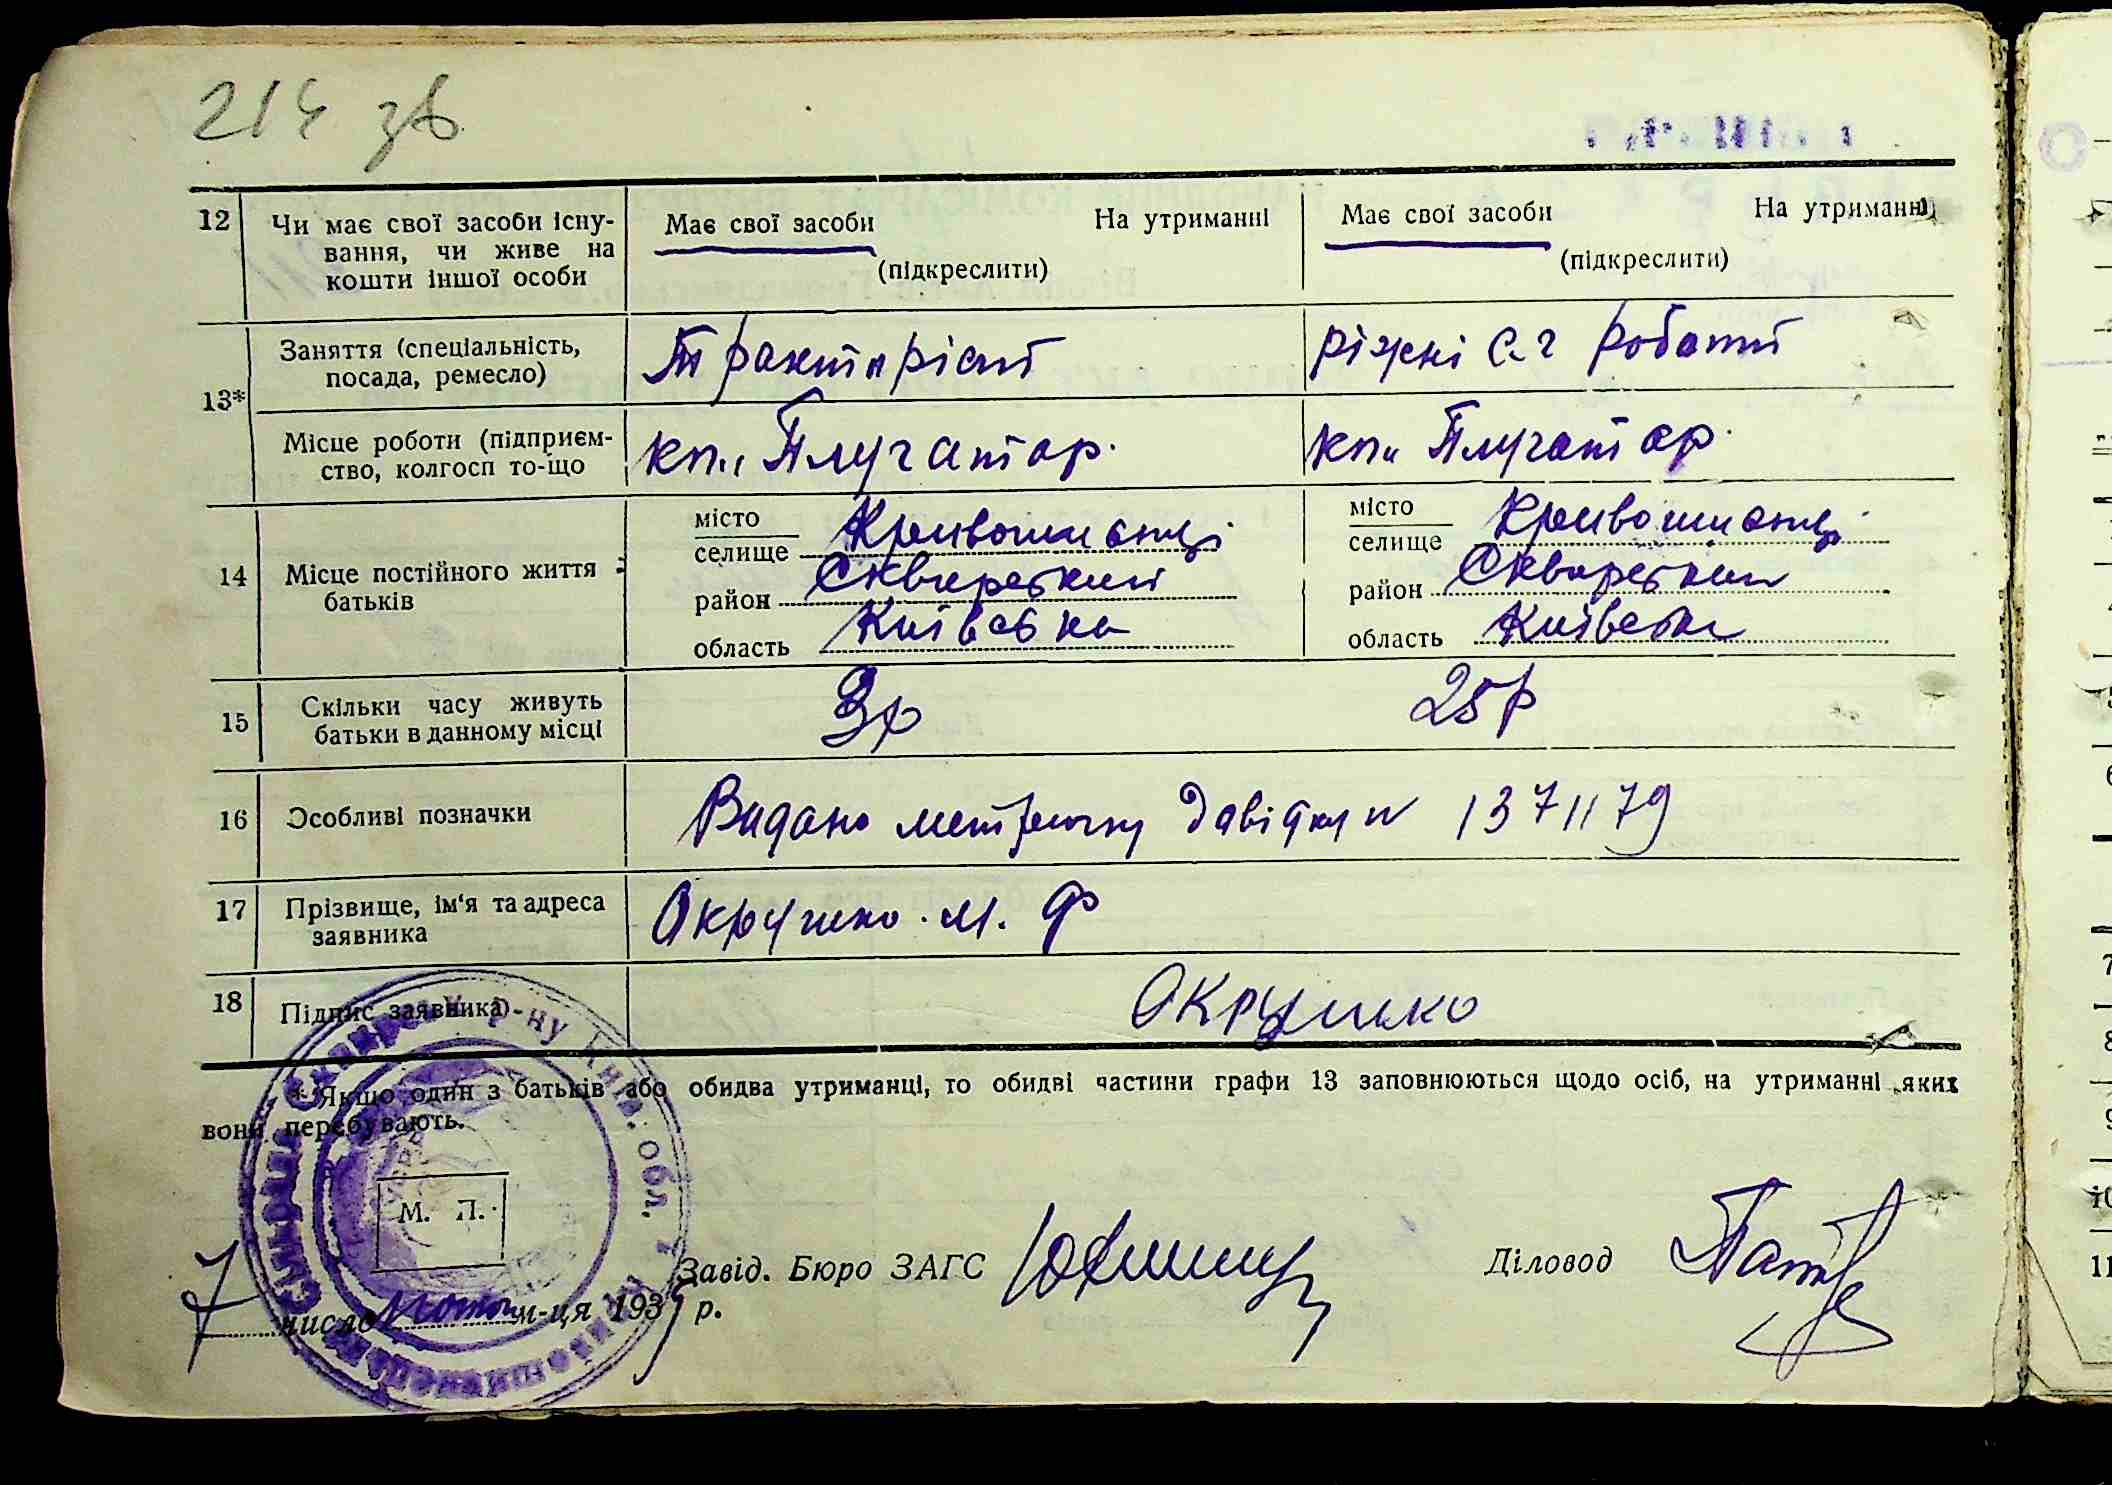 214 зв
12 Чи має свої засоби існу- Має свої засоби На утриманні Має свої засоби На утриманні
вання, чи живе на
кошти іншої особи (підкреслити) (підкреслити)
13* Заняття (спеціальність, Тракторіст ріжні с-г роботи
посада, ремесло)
Місце роботи (підприєм- кп. Плугатар. кп. Плугатар.
ство, колгосп то-що
14 Місце постійного життя батьків
місто Кривошиєнці місто Кривошиєнці
селище селище
район Сквирський район Сквирський
область Київська область Київська
15 Скільки часу живуть 3р 25р
батьки в данному місці
16 Особливі позначки Видано метричну довідку № 1371179
17 Прізвище, ім'я та адреса Окрушко. М. Ф
заявника
18 Підпис заявника Окрушко
* Якщо один з батьків або обидва утриманці, то обидві частини графи 13 заповнюються щодо осіб, на утриманні яких
вони перебувають.
М. П.
Завід. Бюро ЗАГС Діловод
7 число м-ця 193 р.
Сквирськ р-ну Київ. обл.